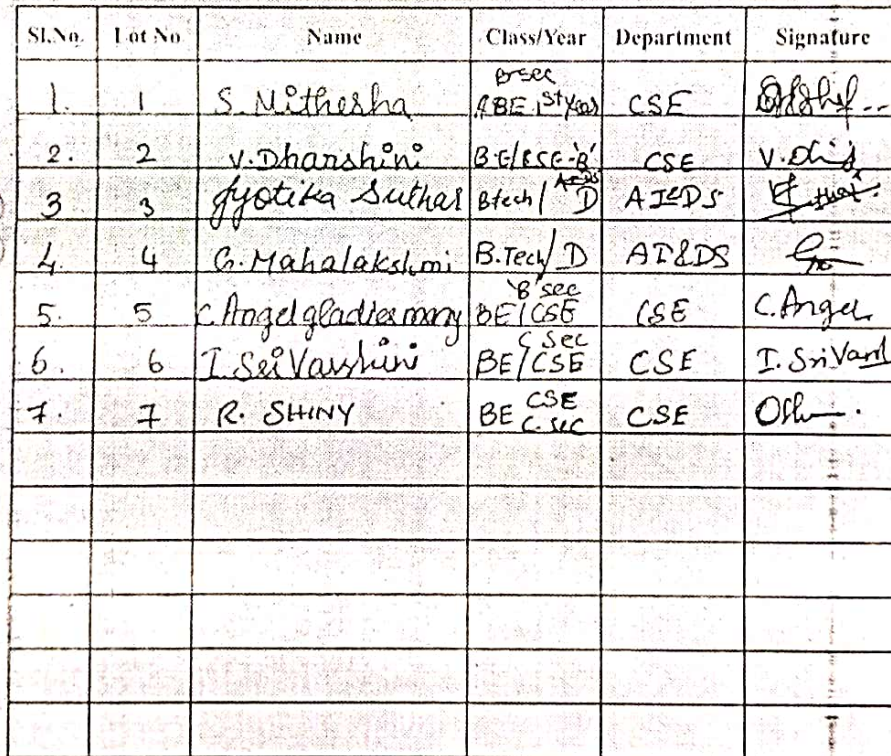 Sl.No. Lot No Name Class/Year Department Signature
B sec
1. 1 S. Mithesha BE 1st Year CSE
2. 2 V. Dharshini B.E/CSE-'B' CSE
AI&DS
3 3 Jyotika Suthar Btech/ D AI&DS
4. 4 G. Mahalakshmi B.Tech/D AI&DS
'B' sec
5. 5 C. Angel gladies mary BE/CSE CSE C. Angel
C Sec
6. 6 I. Sri Varshini BE/CSE CSE I. Sri Varsh
7. 7 R. SHINY BE CSE CSE
C. sec